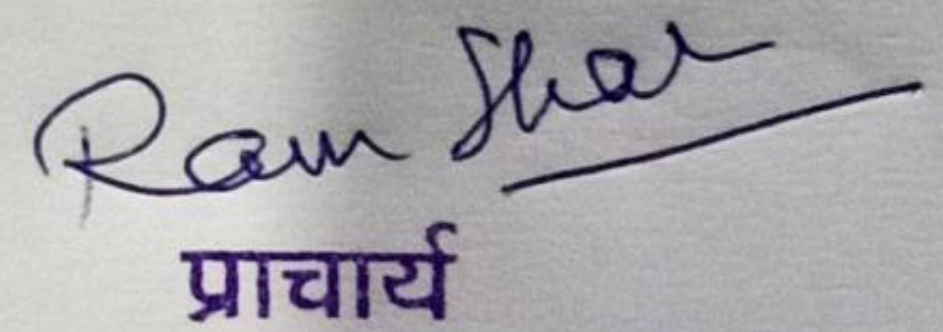 Ram Shar
प्राचार्य